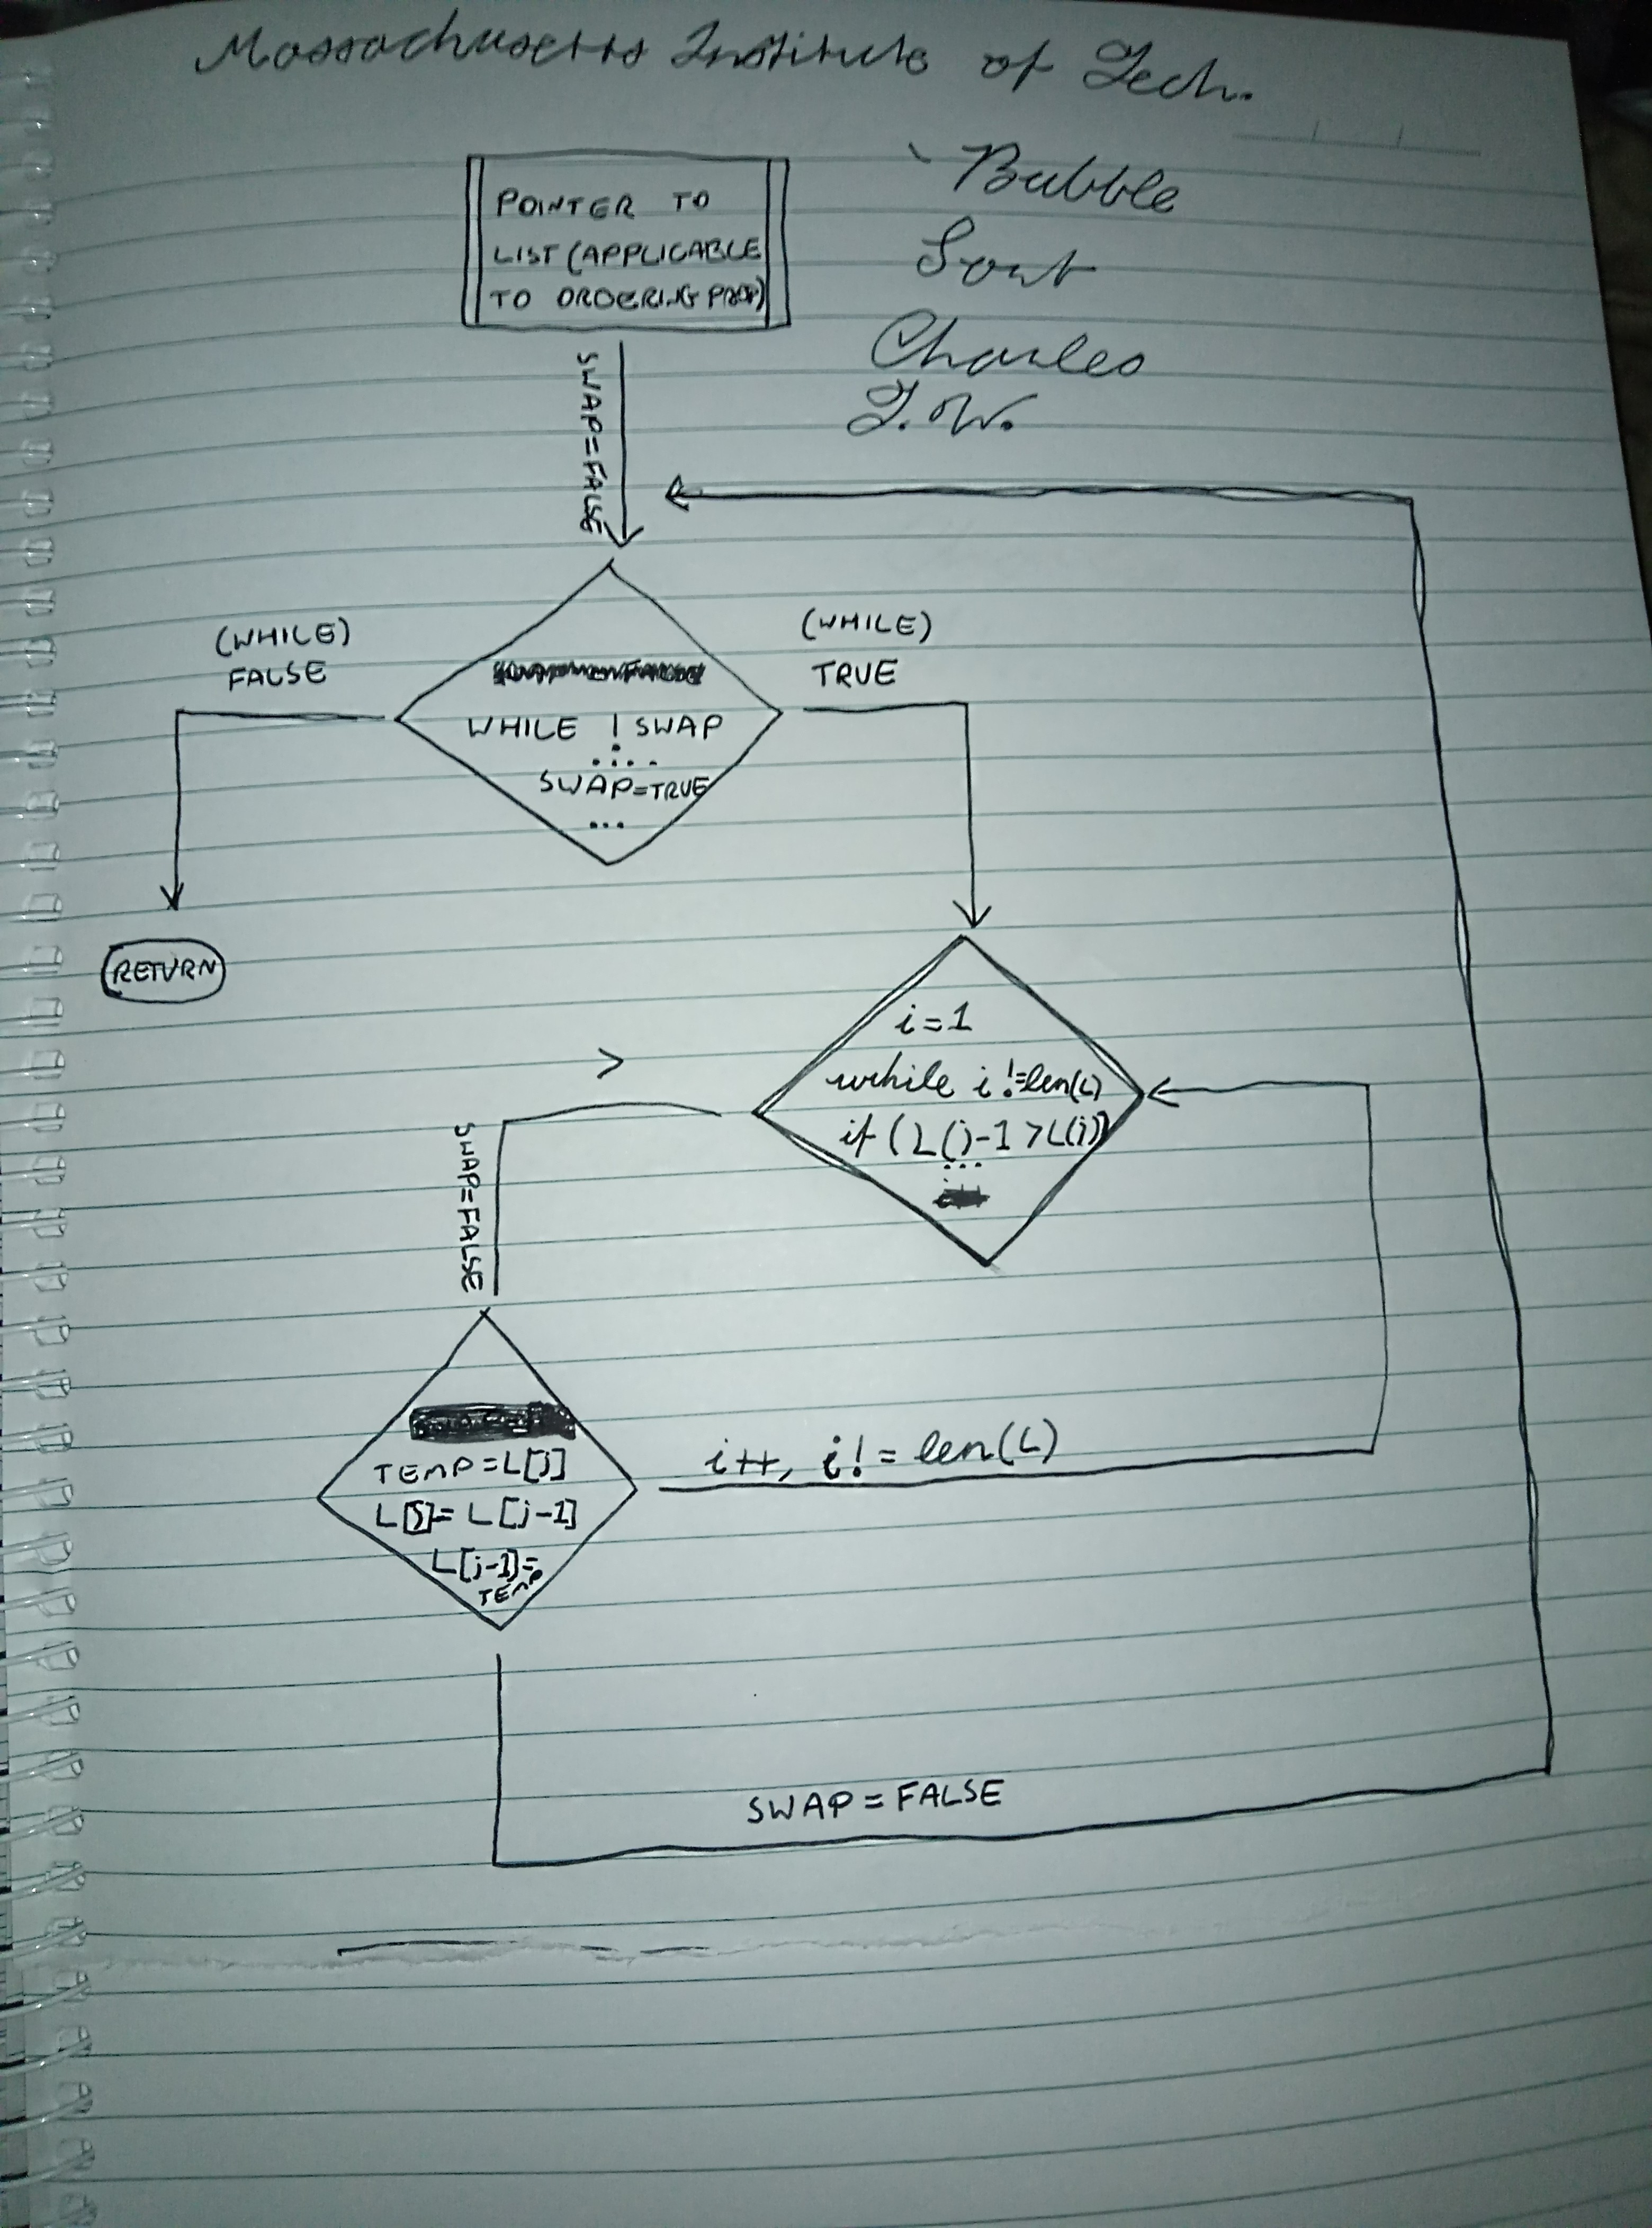 Massachusetts Institute of Tech.
POINTER TO
LIST (APPLICABLE
TO ORDERING PROP)
Bubble
Sort
Charles
J.W.
SWAP=FALSE
(WHILE)
FALSE
(WHILE)
TRUE
WHILE ! SWAP
....
SWAP=TRUE
...
RETURN
i=1
while i !=len(L)
if (L()-1 >L(j))
...
>
SWAP=FALSE
TEMP=L[j]
L[j]= L[j-1]
L[j-1]=
TEMP
i++, i! = len(L)
SWAP = FALSE